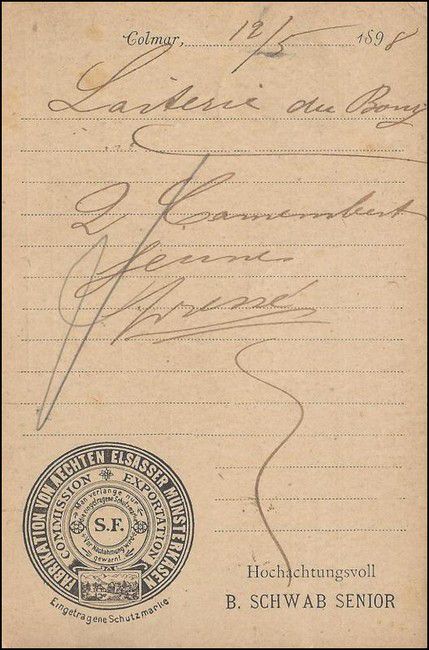 Colmar, 12/5 1898
Laiterie du Bourg
2 Camembert
Jeunes
FABRIKATION VON AECHTEN ELSASSER MÜNSTERKÄSEN
COMMISSION EXPORTATION
Man verlange nur
eingetragene Schutzmarke
S.F.
Vor Nachahmung wird
gewarnt
Eingetragene Schutzmarke
Hochachtungsvoll
B. SCHWAB SENIOR